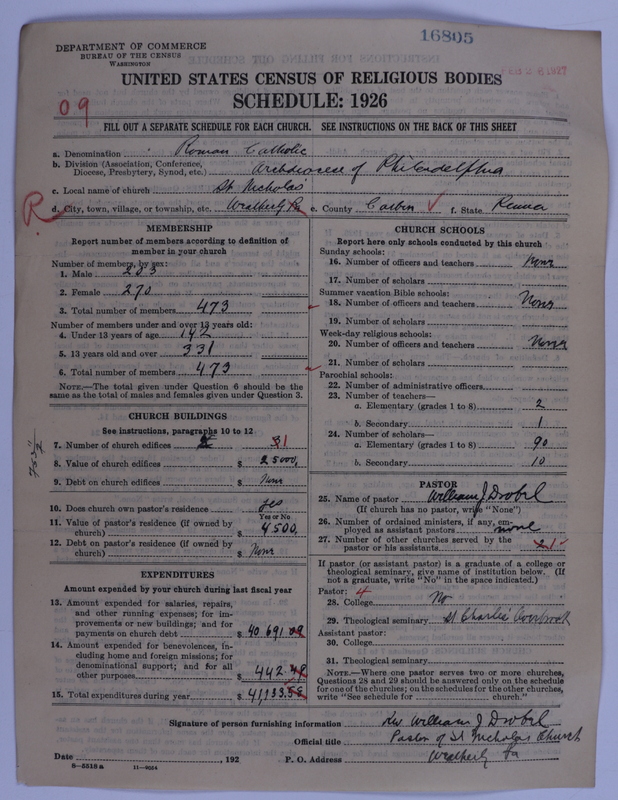 16805
DEPARTMENT OF COMMERCE
BUREAU OF THE CENSUS
WASHINGTON
UNITED STATES CENSUS OF RELIGIOUS BODIES
SCHEDULE: 1926
09
FILL OUT A SEPARATE SCHEDULE FOR EACH CHURCH. SEE INSTRUCTIONS ON THE BACK OF THIS SHEET
a. Denomination Roman Catholic
b. Division (Association, Conference, Diocese, Presbytery, Synod, etc.) Archdiocese of Philadelphia
c. Local name of church St Nicholas
R
d. City, town, village, or township, etc. Weatherly Pa e. County Carbon f. State Penna
MEMBERSHIP
Report number of members according to definition of member in your church
Number of members, by sex:
1. Male
2. Female 270
3. Total number of members 473
Number of members under and over 13 years old:
4. Under 13 years of age 142
5. 13 years old and over 331
6. Total number of members 473
NOTE.—The total given under Question 6 should be the same as the total of males and females given under Question 3.
CHURCH BUILDINGS
See instructions, paragraphs 10 to 12
7. Number of church edifices 1
8. Value of church edifices $ 25000
9. Debt on church edifices $ None
10. Does church own pastor's residence? yes
Yes or No
11. Value of pastor's residence (if owned by church) $ 4500.
12. Debt on pastor's residence (if owned by church) $ None
EXPENDITURES
Amount expended by your church during last fiscal year
13. Amount expended for salaries, repairs, and other running expenses; for improvements or new buildings; and for payments on church debt $ 40 691 09
14. Amount expended for benevolences, including home and foreign missions; for denominational support; and for all other purposes $ 442.49
15. Total expenditures during year $ 41,133.58
CHURCH SCHOOLS
Report here only schools conducted by this church
Sunday schools:
16. Number of officers and teachers None
17. Number of scholars
Summer vacation Bible schools:
18. Number of officers and teachers None
19. Number of scholars
Week-day religious schools:
20. Number of officers and teachers None
21. Number of scholars
Parochial schools:
22. Number of administrative officers
23. Number of teachers—
a. Elementary (grades 1 to 8) 2
b. Secondary 1
24. Number of scholars—
a. Elementary (grades 1 to 8) 90
b. Secondary 10
PASTOR
25. Name of pastor William J Drobel
(If church has no pastor, write "None")
26. Number of ordained ministers, if any, employed as assistant pastors none
27. Number of other churches served by the pastor or his assistants 1
If pastor (or assistant pastor) is a graduate of a college or theological seminary, give name of institution below. (If not a graduate, write "No" in the space indicated.)
Pastor: 4
28. College No
29. Theological seminary St Charles Overbrook
Assistant pastor:
30. College
31. Theological seminary
NOTE.—Where one pastor serves two or more churches, Questions 28 and 29 should be answered only on the schedule for one of the churches; on the schedules for the other churches, write "See schedule for church."
Signature of person furnishing information Rev William J Drobel
Official title Pastor of St Nicholas Church
Date , 192 P. O. Address Weatherly Pa
8-5518a 11-9054